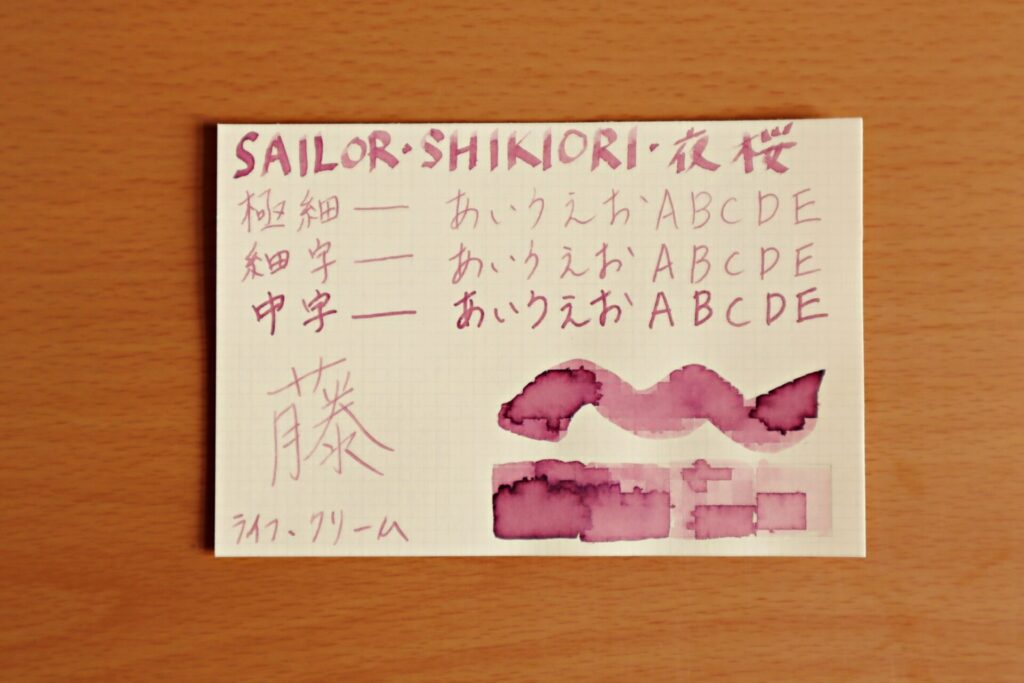 SAILOR・SHIKIORI・夜桜
極細 ― あいうえおABCDE
細字 ― あいうえおABCDE
中字 ― あいうえおABCDE
藤
ライフ、クリーム